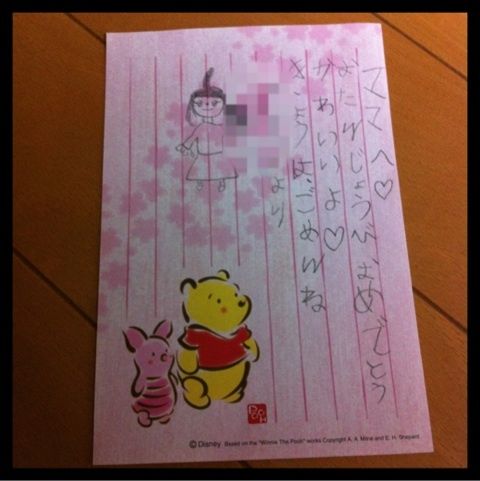 ママへ♡
おたんじょうびおめでとう
かわいいよ♡
きょうはごめんね
より
POOH
©Disney Based on the "Winnie The Pooh" works Copyright A. A. Milne and E. H. Shepard